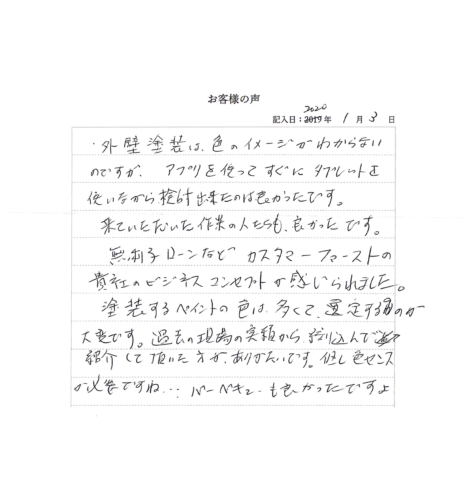 お客様の声
2020
記入日:2019年 1月 3日
・外壁塗装は、色のイメージがわからない
のですが、アプリを使ってすぐにタブレットを
使いながら検討出来たのは良かったです。
来ていただいた作業の人たちも、良かったです。
無利子ローンなど カスタマーファーストの
貴社のビジネスコンセプトが感じられました。
塗装するペイントの色は、多くて、選定するのが
大変です。過去の現場の実績から、絞り込んで
紹介して頂いた方が、ありがたいです。但し色センス
が必要ですね…。バーベキューも良かったですよ